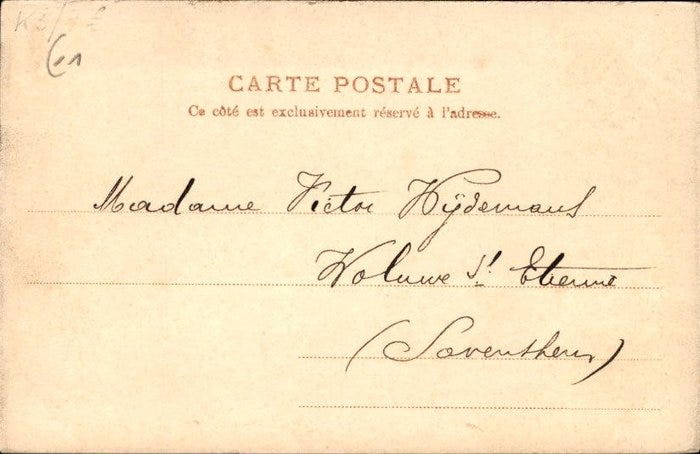 CARTE POSTALE
Ce côté est exclusivement réservé à l'adresse.
Madame Victor Wÿdemans
Woluwe St Etienne
(Saventhem)